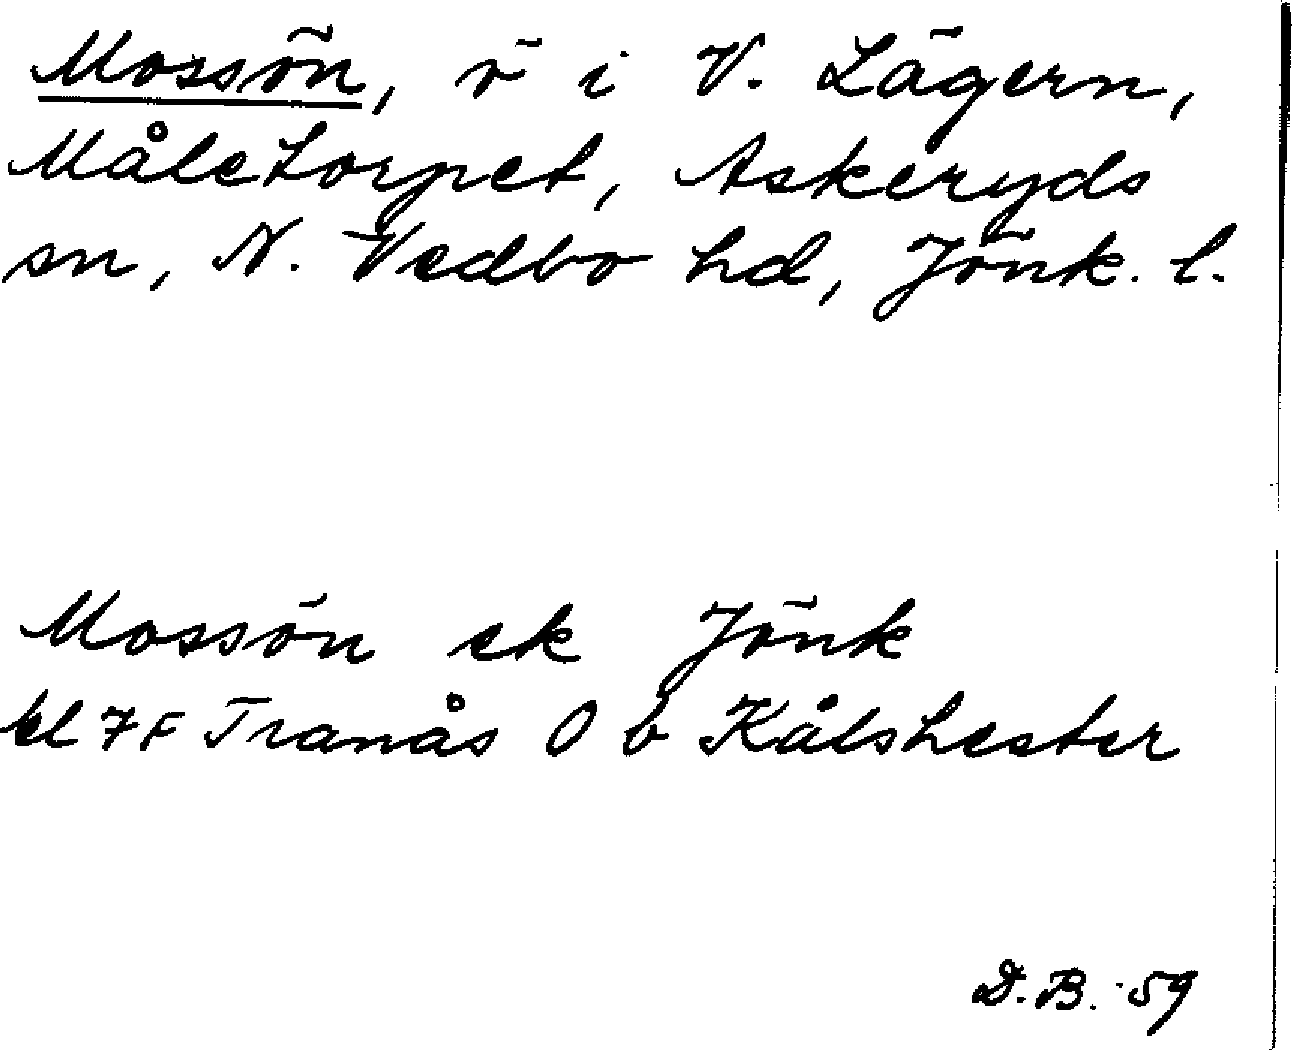 Mossön, ö i V. Lägern,
Måletorpet, Askeryds
sn, N. Vedbo hd, Jönk. l.
Mossön ek Jönk
bl 7F Tranås O b Kålshester
D.B. -59